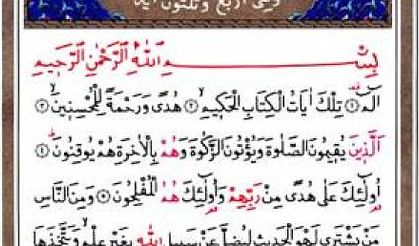 وهي أربع وثلثون آية
بِسْمِ اللّٰهِ الرَّحْمٰنِ الرَّحِيمِ
الٓمٓ ﴿١﴾ تِلْكَ اٰيَاتُ الْكِتَابِ الْحَكِيمِ ﴿٢﴾ هُدًى وَرَحْمَةً لِلْمُحْسِنِينَ ﴿٣﴾
اَلَّذِينَ يُقِيمُونَ الصَّلٰوةَ وَيُؤْتُونَ الزَّكٰوةَ وَهُمْ بِالْاٰخِرَةِ هُمْ يُوقِنُونَ ﴿٤﴾
اُولٰٓئِكَ عَلٰى هُدًى مِنْ رَبِّهِمْ وَاُولٰٓئِكَ هُمُ الْمُفْلِحُونَ ﴿٥﴾ وَمِنَ النَّاسِ
مَنْ يَشْتَرِى لَهْوَ الْحَدِيثِ لِيُضِلَّ عَنْ سَبِيلِ اللّٰهِ بِغَيْرِ عِلْمٍ وَيَتَّخِذَهَا